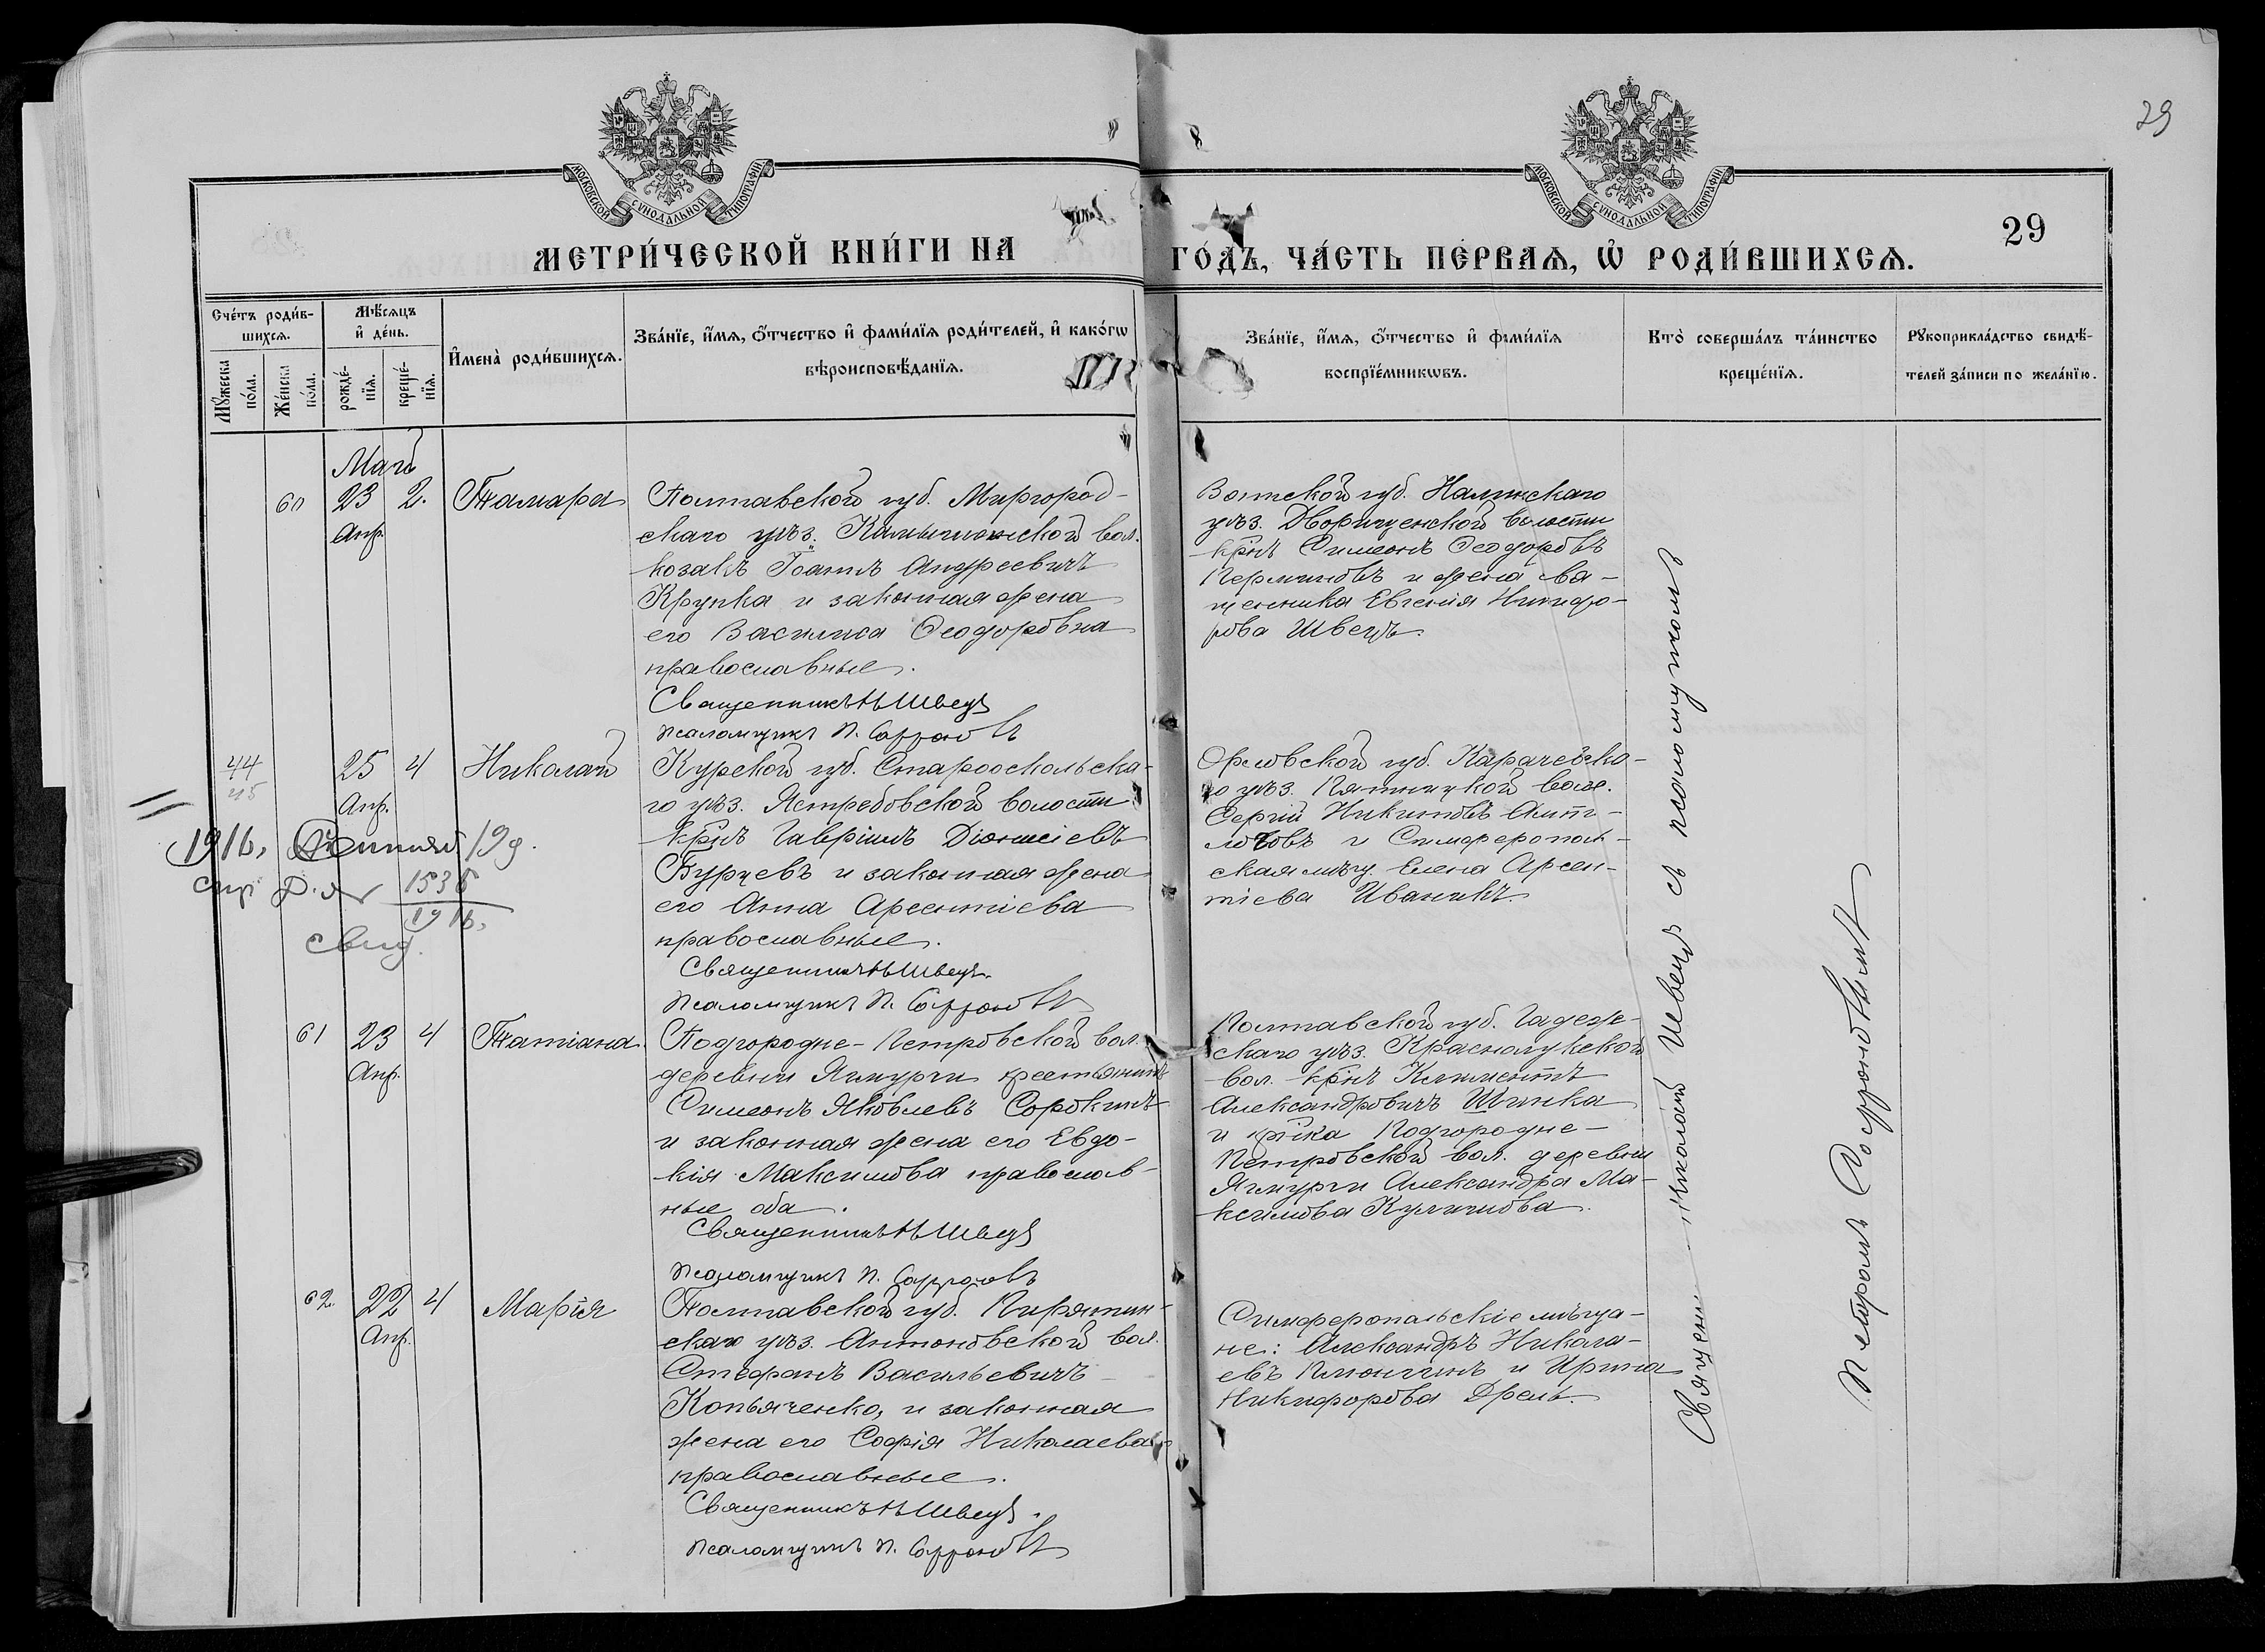 29
МОСКОВСКОЙ СѴНОДАЛЬНОЙ ТИПОГРАФІИ
МОСКОВСКОЙ СѴНОДАЛЬНОЙ ТИПОГРАФІИ
29
МЕТРИ́ЧЕСКОЙ КНИ́ГИ НА
ГО́ДЪ, ЧА́СТЬ ПЕ́РВАѦ, Ѡ҆ РОДИ́ВШИХСѦ.
Сче́тъ роди́в-
шихсѧ.
Мꙋ́жеска по́ла.
Же́нска по́ла.
Мѣ́сѧцъ
и҆ де́нь.
рожде́-
нїѧ.
креще́-
нїѧ.
И҆мена̀ роди́вшихсѧ.
Зва́нїе, и҆́мѧ, ѻ҆́тчество и҆ фами́лїѧ роди́телей, и҆ како́гѡ
вѣроисповѣ́данїѧ.
Зва́нїе, и҆́мѧ, ѻ҆́тчество и҆ фами́лїѧ
воспрїе́мникѡвъ.
Кто̀ соверша́лъ та́инство
креще́нїѧ.
Рꙋкоприкла́дство свидѣ́-
телей за́писи по жела́нїю.
Май
60
23
Апр.
2.
Тамара
Полтавской губ. Миргород-
скаго уѣз. Камышанской вол.
козакъ Іоаннъ Андреевичъ
Крупка и законная жена
его Василиса Ѳеодоровна
православные.
Священникъ Н Швецъ
Псаломщикъ П. Софроновъ
Вятской губ. Налинскаго
уѣз. Дворищенской волости
крнъ Симеонъ Ѳеодоровъ
Перминовъ и жена свя-
щенника Евгенія Никифо-
рова Швецъ.
44
45
25
Апр.
4
Николай
Курской губ. Старооскольска-
го уѣз. Ястребовской волости
крнъ Гавріилъ Діонисіевъ
Бурцевъ и законная жена
его Анна Арсентіева
православные.
Священникъ Н Швецъ.
Псаломщикъ П. Софроновъ
Орловской губ. Карачевска-
го уѣз. Пятницкой вол.
Сергій Никитовъ
и Симферополь-
ская мѣщ. Елена Арсен-
тіева Иваникъ.
1916, 19 д.
1536
1916.
свид.
61
23
Апр.
4
Татіана
Подгородне-Петровской вол.
деревни Ягмурчи крестьянинъ
Симеонъ Яковлевъ Сорокинъ
и законная жена его Евдо-
кія Максимова православ-
ные оба.
Священникъ Н Швецъ
Псаломщикъ П. Софроновъ
Полтавской губ. Гадяч-
скаго уѣз. Краснолукской
вол. крнъ Климентъ
Александровичъ Шинка
и крнка Подгородне-
Петровской вол. деревни
Ягмурчи Александра Ма-
ксимова Куличкова.
62.
22
Апр.
4
Марія
Полтавской губ. Пирятин-
скаго уѣз. Антоновской вол.
Стефанъ Васильевичъ
Копьяченко, и законная
жена его Софія Николаева
православные.
Священникъ Н Швецъ.
Псаломщикъ П. Софроновъ
Симферопольскіе мѣща-
не: Александръ Никола-
евъ и Ирина
Никифорова Дрель.
Священ. Николай Швецъ съ псаломщикомъ
Петромъ Софроновымъ